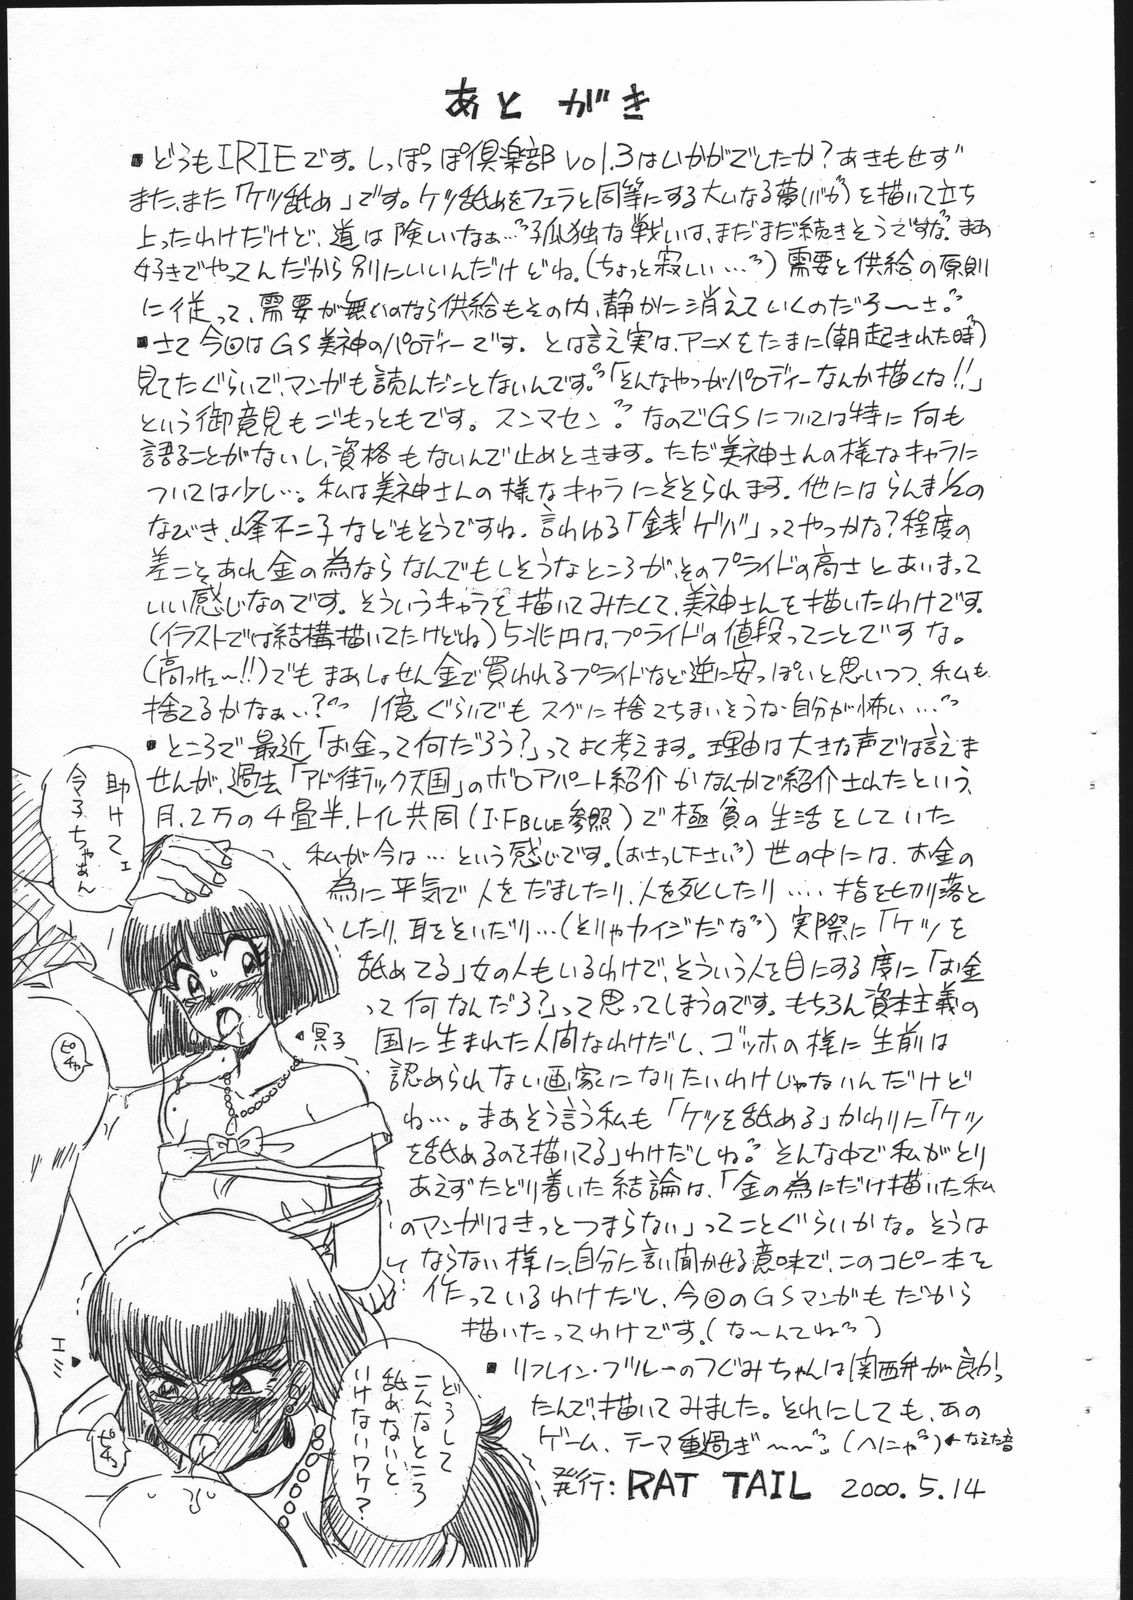 あとがき
■どうもIRIEです。しっぽっぽ倶楽部vol.3はいかがでしたか?あきもせず
また、また「ケツ舐め」です。ケツ舐めをフェラと同等にする大いなる夢(バカ)を描いて立ち
上ったわけだけど、道は険しいなぁ…孤独な戦いは、まだまだ続きそうですな。まあ
好きでやってんだから別にいいんだけどね。(ちょっと寂しい…)需要と供給の原則
に従って、需要が無いのなら供給もその内、静かに消えていくのだろ〜さ。
■さて今回はGS美神のパロディーです。とは言え実は、アニメをたまに(朝起きれた時)
見てたぐらいで、マンガも読んだことないんです。「そんなやつがパロディーなんか描くな!!」
という御意見もごもっともです。スンマセン。なのでGSについては特に何も
語ることがないし、資格もないんで止めときます。ただ美神さんの様なキャラに
ついては少し…。私は美神さんの様なキャラにそそられます。他にはらんま1/2の
なびき、峰不二子などもそうですね。言わゆる「銭ゲバ」ってやつかな?程度の
差こそあれ金の為ならなんでもしそうなところが、そのプライドの高さとあいまって
いい感じなのです。そういうキャラを描いてみたくて、美神さんを描いたわけです。
(イラストでは結構描いてたけどね)5兆円は、プライドの値段ってことですな。
(高っけェ〜!!)でもまあしょせん金で買われるプライドなど逆に安っぽいと思いつつ、私も
捨てるかなぁ…?1億ぐらいでもスグに捨てちまいそうな自分が怖い…
■ところで最近「お金って何だろう?」ってよく考えます。理由は大きな声では言えま
せんが、過去「アド街ック天国」のボロアパート紹介かなんかで紹介されたという、
月、2万の4畳半、トイレ共同(I・F BLUE参照)で極貧の生活をしていた
私が今は…という感じです。(おさっし下さい)世の中には、お金の
為に平気で人をだましたり、人を死したり…指を切り落と
したり、耳をそいだり…(そりゃカイジだな)実際に「ケツを
舐めてる」女の人もいるわけで、そういう人を目にする度に「お金
って何なんだろ?」って思ってしまうのです。もちろん資本主義の
国に生まれた人間なわけだし、ゴッホの様に生前は
認められない画家になりたいわけじゃないんだけど
ね…。まあそう言う私も「ケツを舐める」かわりに「ケツ
を舐めるのを描いてる」わけだしね。そんな中で私がとり
あえずたどり着いた結論は、「金の為にだけ描いた私
のマンガはきっとつまらない」ってことぐらいかな。そうは
ならない様に、自分に言い聞かせる意味で、このコピー本を
作っているわけだし、今回のGSマンガもだから
描いたってわけです。(な〜んてね)
■リフレイン・ブルーのつぐみちゃんは関西弁が良かっ
たんで、描いてみました。それにしても、あの
ゲーム、テーマ重過ぎ〜〜。(へにゃ)←なえた音
発行:RAT TAIL 2000.5.14
助けてェ
令子ちゃあん
冥子
ピチャ
エミ
ピチュ
どうして
こんなところ
舐めないと
いけないワケ?